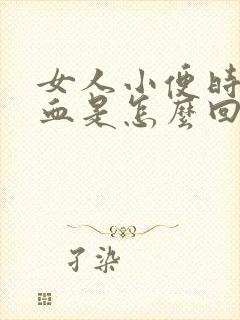 女人小便时
血是怎麽回
孑染